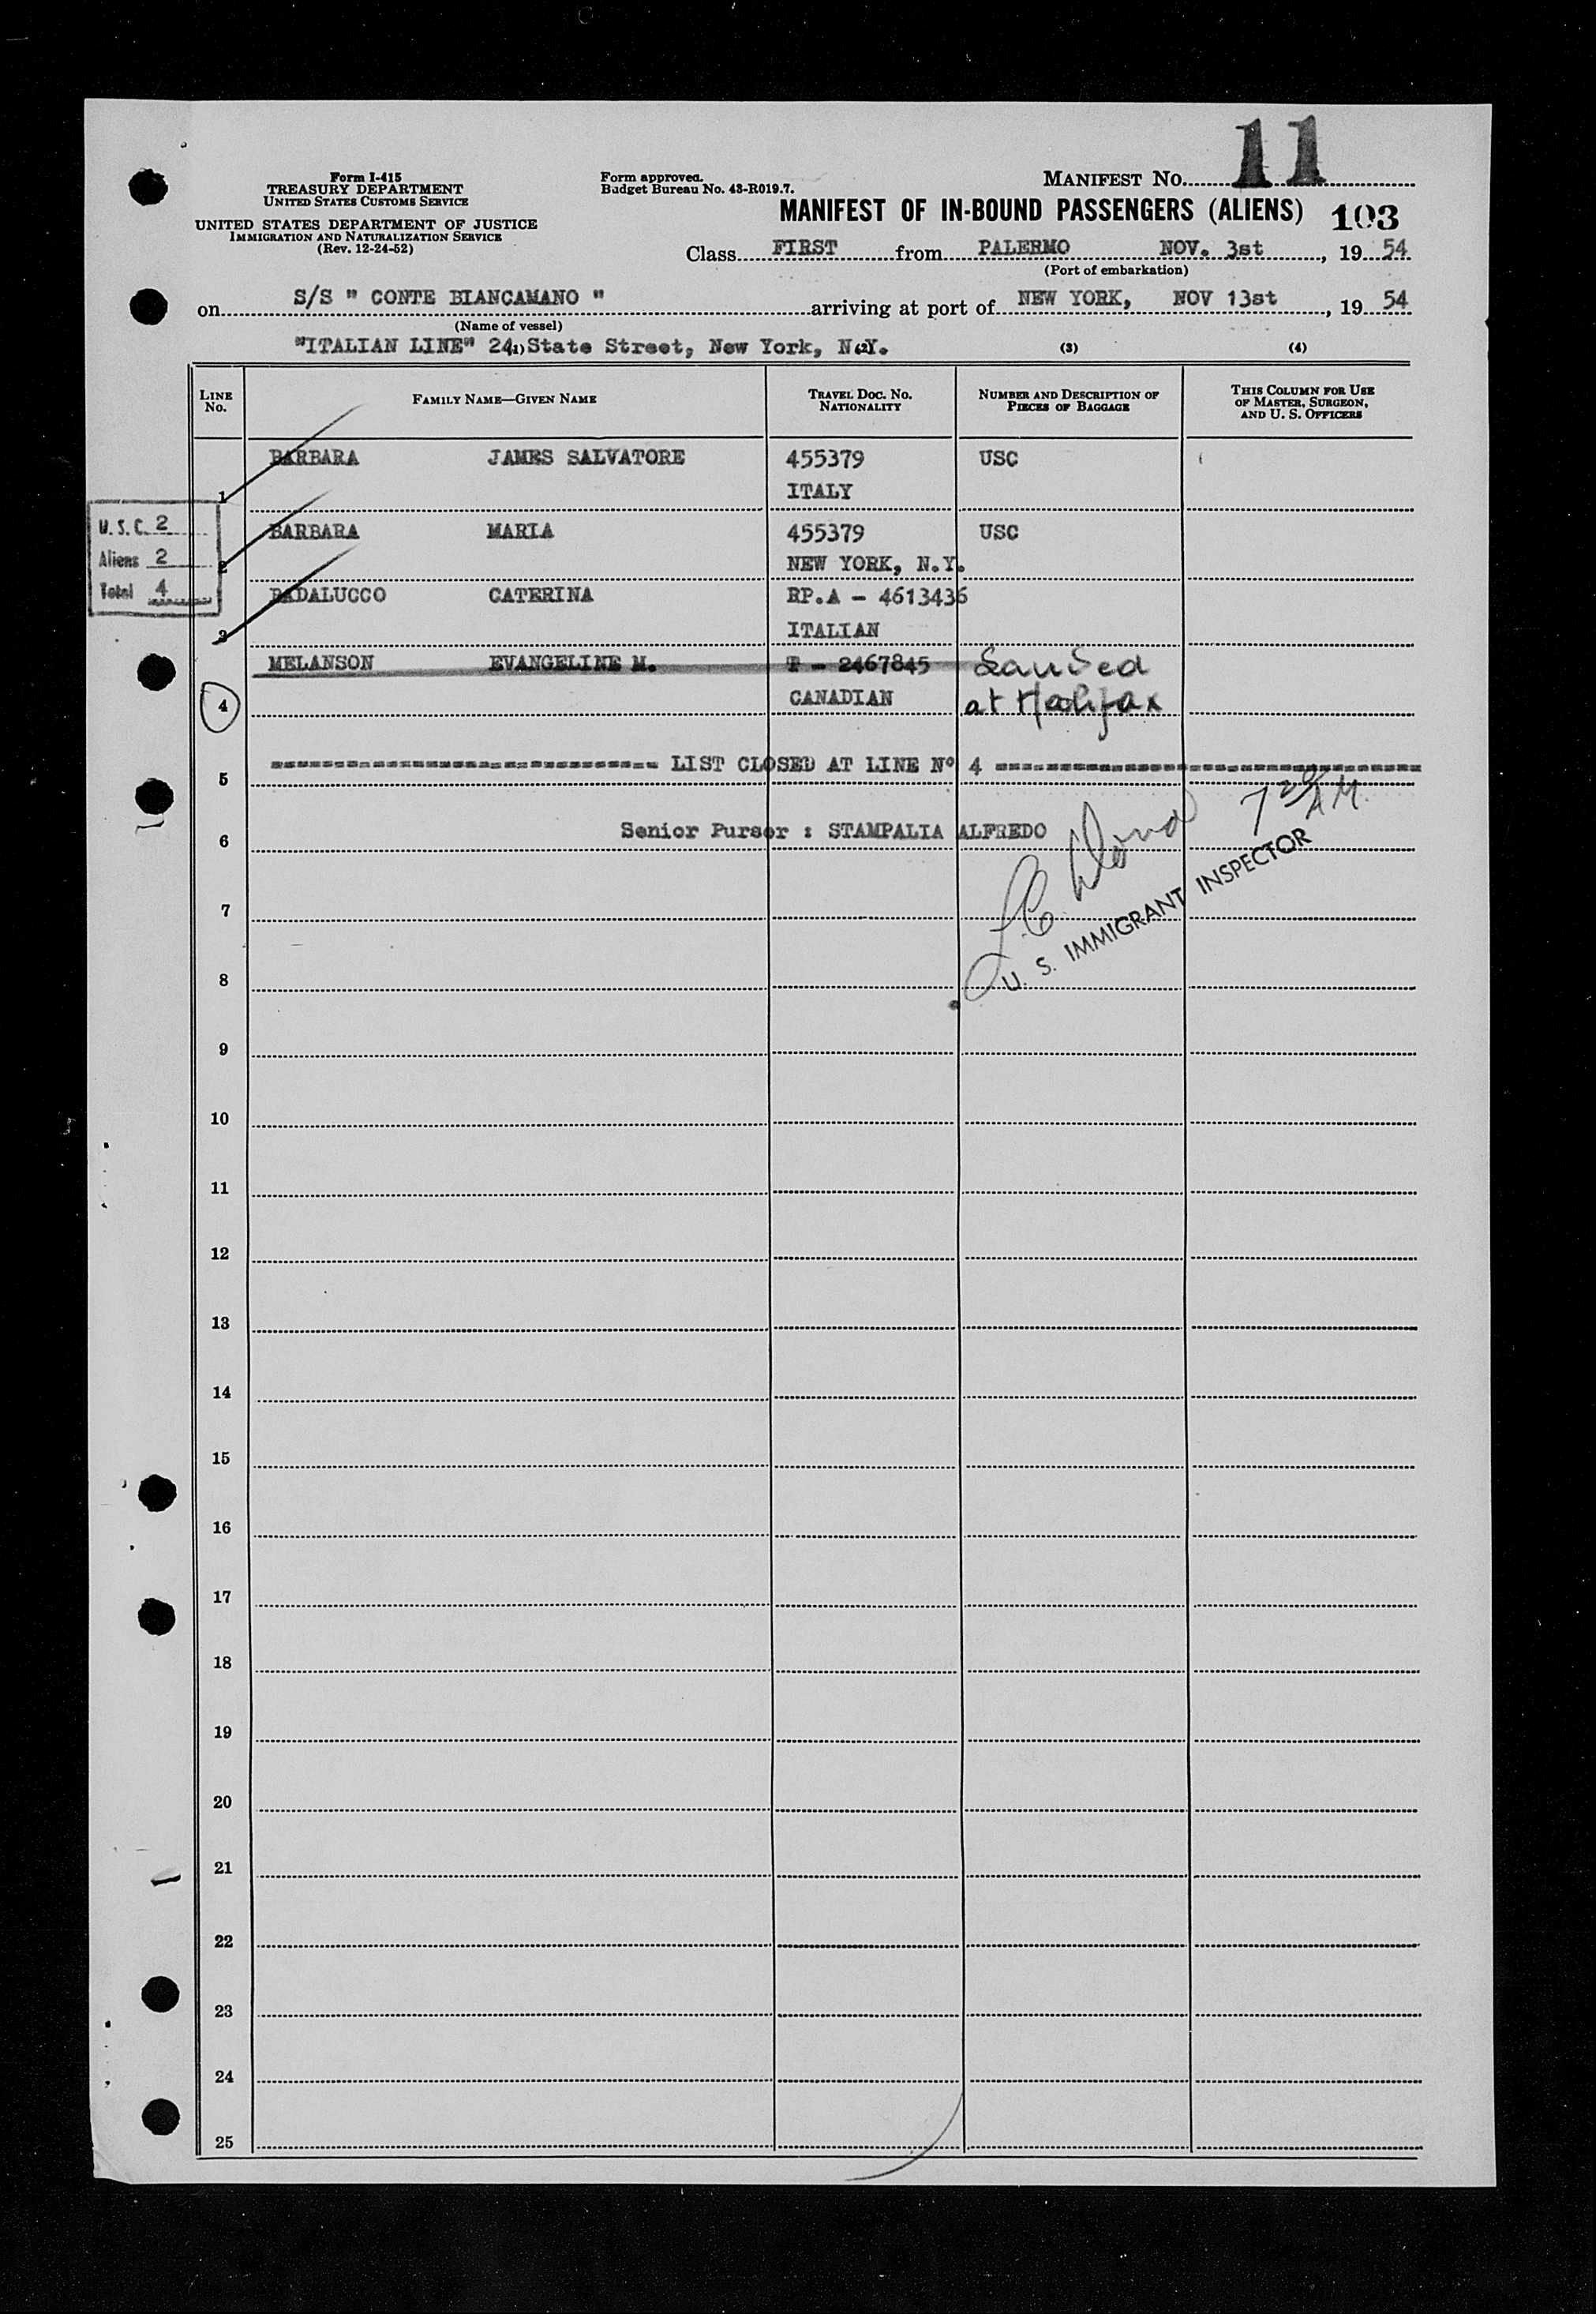 11
Form I-415
TREASURY DEPARTMENT
UNITED STATES CUSTOMS SERVICE
UNITED STATES DEPARTMENT OF JUSTICE
IMMIGRATION AND NATURALIZATION SERVICE
(Rev. 12-24-52)
Form approved.
Budget Bureau No. 43-R019.7.
MANIFEST NO.
MANIFEST OF IN-BOUND PASSENGERS (ALIENS) 103
Class FIRST from PALERMO NOV. 3st, 19 54
(Port of embarkation)
on S/S " CONTE BIANCAMANO " arriving at port of NEW YORK, NOV 13st, 19 54
(Name of vessel)
"ITALIAN LINE" 24, State Street, New York, N.Y.
(1) (2) (3) (4)
LINE NO. FAMILY NAME—GIVEN NAME TRAVEL DOC. NO. NATIONALITY NUMBER AND DESCRIPTION OF PIECES OF BAGGAGE THIS COLUMN FOR USE OF MASTER, SURGEON, AND U. S. OFFICERS
BARBARA JAMES SALVATORE 455379 USC
1 ITALY
U.S.C. 2
Aliens 2
Total 4
BARBARA MARIA 455379 USC
2 NEW YORK, N.Y.
BADALUCCO CATERINA RP.A - 4613436
3 ITALIAN
MELANSON EVANGELINE M. P - 2467845 Landed
4 CANADIAN at Halifax
5 LIST CLOSED AT LINE Nº 4
7 20 A.M.
6 Senior Purser : STAMPALIA ALFREDO
U. S. IMMIGRANT INSPECTOR
7
8
9
10
11
12
13
14
15
16
17
18
19
20
21
22
23
24
25